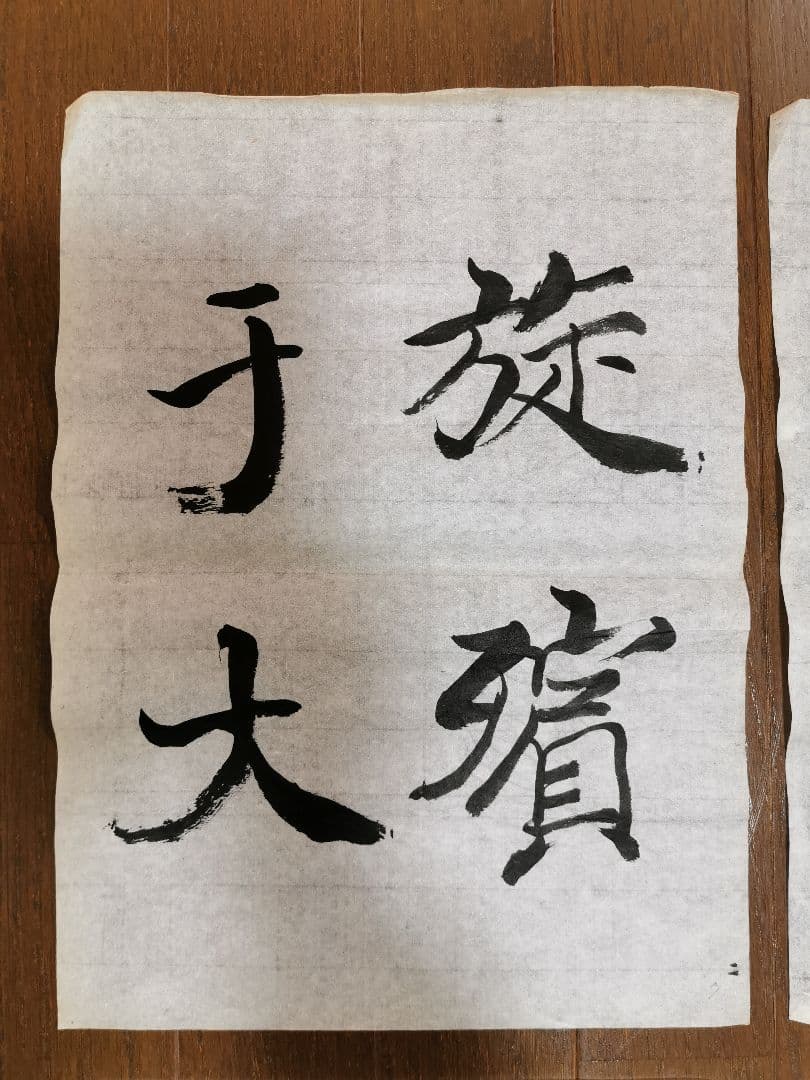 旋殯
于大